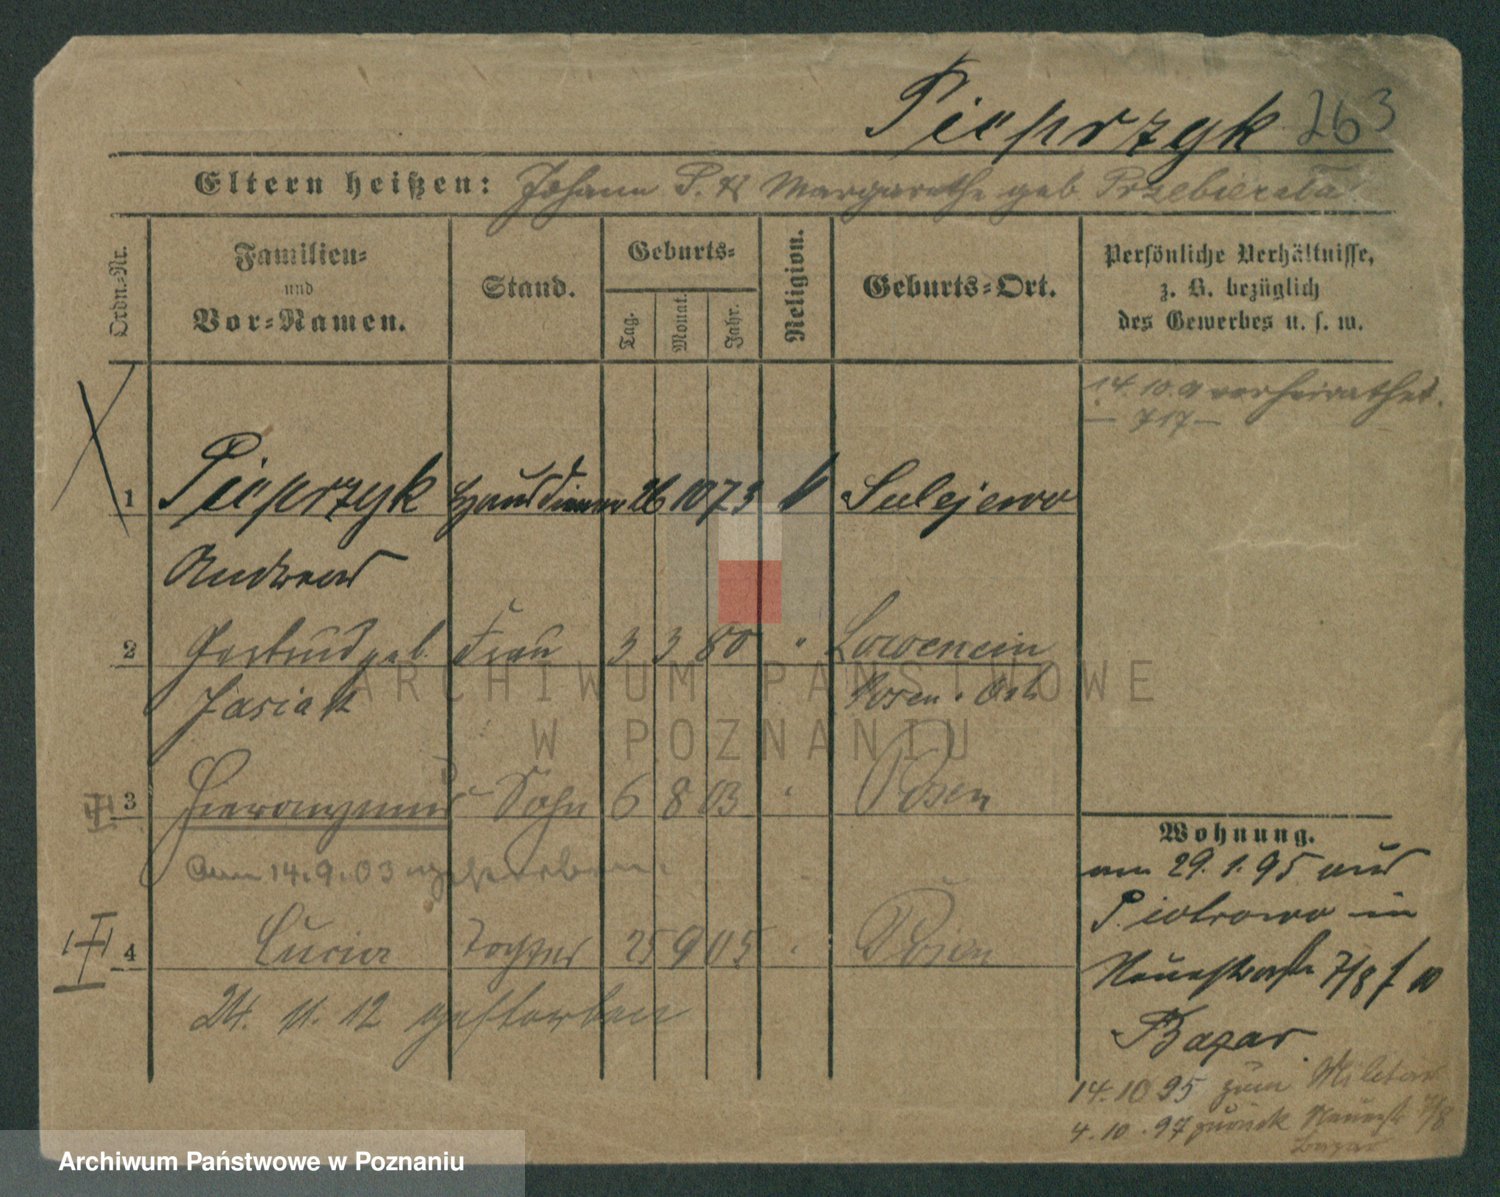 Pieprzyk 263
Eltern heißen: Johann P. & Margarethe geb
Ordn.-Nr.
Familien-
und
Vor-Namen.
Stand.
Geburts-
Tag.
Monat.
Jahr.
Religion.
Geburts-Ort.
Persönliche Verhältnisse,
z. B. bezüglich
des Gewerbes u. s. w.
14. 10. 0 verheirathet.
— 717 —
1 Pieprzyk Hausdiener 26 10 73 k Sulejewo
Andreas
2 Gertrud geb. Frau 3 3 80 " Lowencin
Jasiak Posen. Ost
3 Hieronymus Sohn 6 8 03 " Posen
Am 14.9.03 gestorben.
4 Lucia Tochter 25 9 05 " Posen
24. 11. 12 gestorben
Wohnung.
am 29.1.95 aus
Piotrowo in
Neuestraße 7/8 f 10
Bazar.
14.10 95 zum Militär
4.10.97 zurück Neuestr 7/8
Bazar
ARCHIWUM PAŃSTWOWE
W POZNANIU
Archiwum Państwowe w Poznaniu